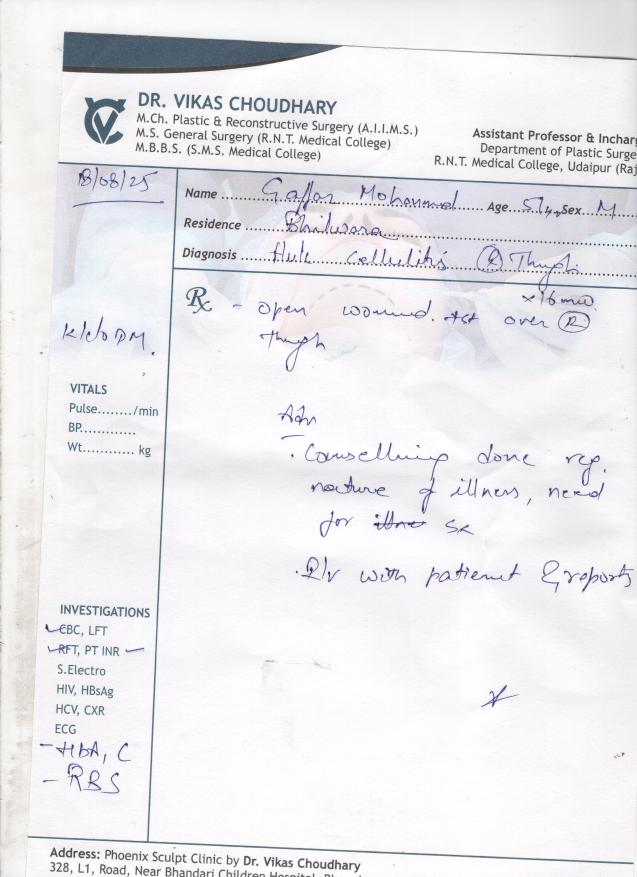 DR. VIKAS CHOUDHARY
M.Ch. Plastic & Reconstructive Surgery (A.I.I.M.S.)
M.S. General Surgery (R.N.T. Medical College)
M.B.B.S. (S.M.S. Medical College)
Assistant Professor & Incharg
Department of Plastic Surge
R.N.T. Medical College, Udaipur (Raj
18/08/25
Name Gaffar Mohammad Age Sex M
Residence Bhilwara
Diagnosis cellulitis (R) Thigh
Rx - open wound over (R)
Thigh
K/c/o DM.
VITALS
Pulse......../min
BP.............
Wt............ kg
Adv
Counselling done reg.
nature of illness, need
for
R/v with patient & reports
INVESTIGATIONS
CBC, LFT
RFT, PT INR
S.Electro
HIV, HBsAg
HCV, CXR
ECG
- HbA,C
- RBS
Address: Phoenix Sculpt Clinic by Dr. Vikas Choudhary
328, L1, Road, Near Bhandari Children Hospital,